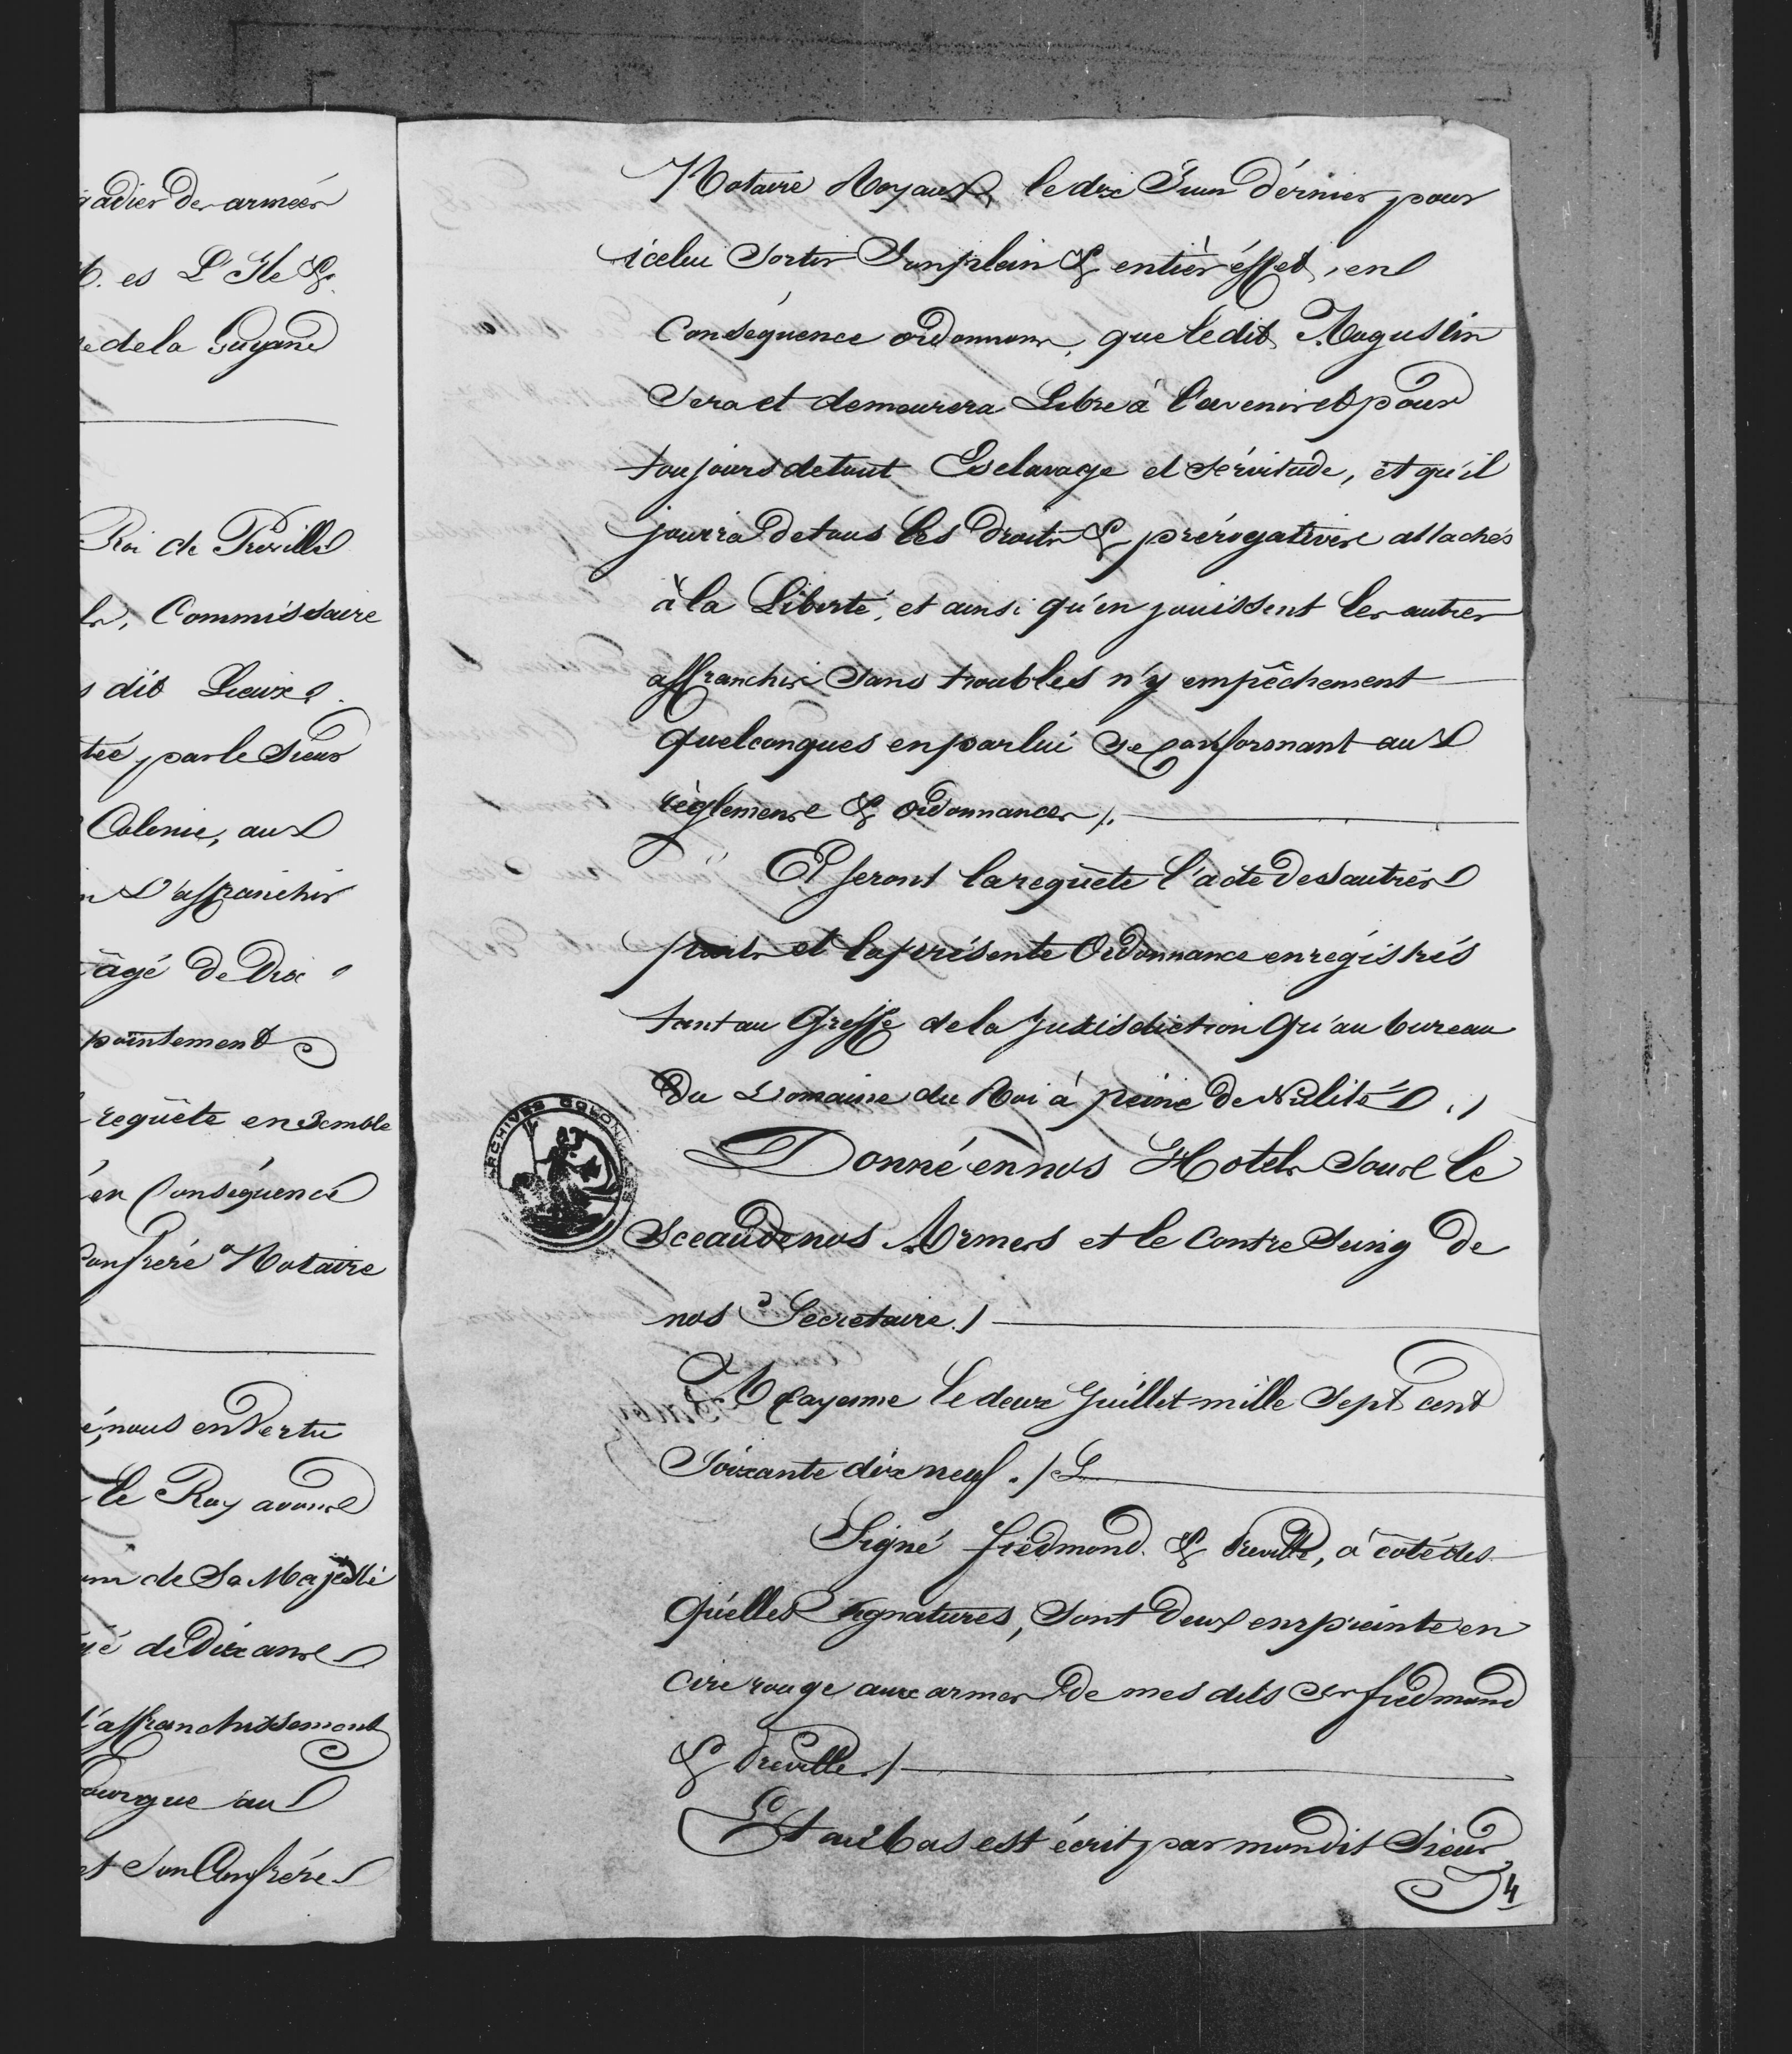 gadier des armées
t. es L'Ile &
e de la Guyane
Roi de Préville
ls, Commissaire
s dit Lieux
tée, par le Sieur
Colonie, aux
n D'affranchir
âgé de Dix
pointement
requête ensemble
en Conséquence
Confrère Notaire
é, nous en Vertu
le Roy avons
om de Sa Majesté
gé de Dix ans
l'affranchissement
ourgue au
et Son Confrère
Notaire Royaux, le dix Juin dérnier, pour
icelui Sortir Son plein & entièr éffet, en
Conséquence ordonnons, que ledit Augustin
Sera et demeurera Libre à l'avenir et pour
toujours de tout Esclavage et sérvitude, et qu'il
jouira de tous les droits & prérogatives attachés
à la Liberté, et ainsi qu'en jouissent les autres
affranchis Sans troubles n'y empêchement
Quelconques en par lui se conformant aux
règlemens & ordonnances /.
Et seront la requête l'acte des autres
parts et la présente Ordonnance enrégistrés
tant au Greffe de la Jurisdiction Qu'au bureau
Du Domaine du Roi à peine de Nullité ./
Donné en nos Hotels Sous le
Sceau de nos Armes et le Contre Seing de
nos Secretaire ./
A Cayenne le deux Juillet mille Sept cent
Soixante dix neuf ./
ARCHIVES COLONIES
Signé fiedmond & Préville, à coté des
Qu'elles signatures, Sont Deux empreinte en
cire rouge aux armes de mes dits Srs fiedmond
& Préville ./
Et au bas est écrit par mondit Sieur
4